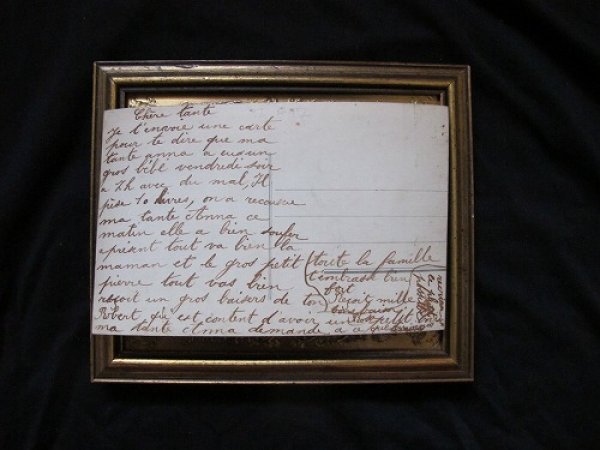 Chère tante
je t'envoie une carte
pour te dire que ma
tante anna a eu un
gros bébé vendredi soir
a 7h avec du mal, Il
pèse 10 livres, on a recousue
ma tante Anna ce
matin elle a bien soufer
aprésent tout va bien la
maman et le gros petit
pierre tout vas bien
reçoit un gros baisers de ton
Robert qui est content d'avoir un petit
ma tante Anna demande a
toute la famille
t'embrasse bien
fort
Reçoit mille